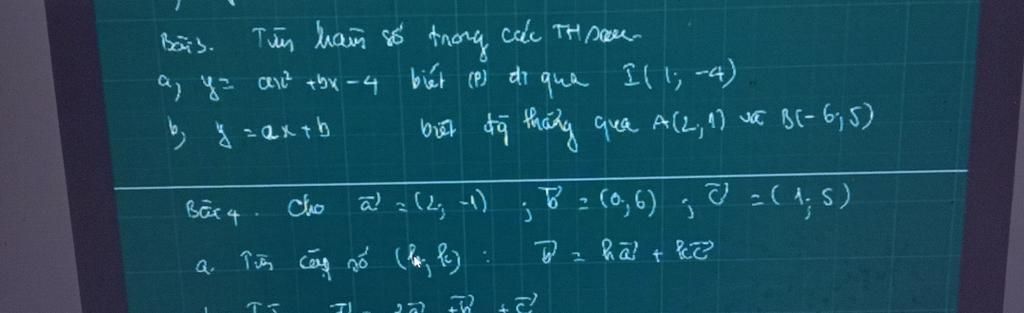 Bài 3. Tìm hàm số trong các TH sau
a, y = ax² + bx - 4 biết (P) đi qua I(1; -4)
b, y = ax + b biết đg thẳng qua A(2,1) và B(-6;5)
Bài 4. Cho a⃗ = (2; -1) ; b⃗ = (0,6) ; c⃗ = (1; 5)
a. Tìm cặp số (h; k) : b⃗ = ha⃗ + kc⃗